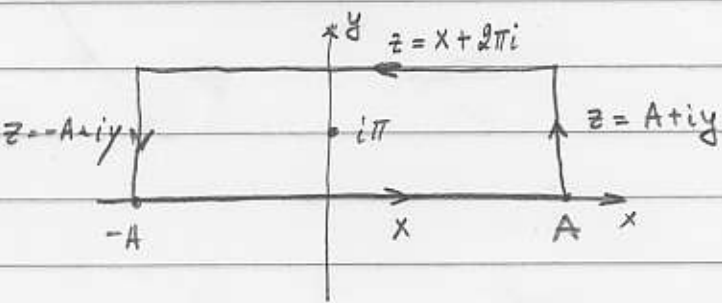 y
z = x + 2πi
z = -A + iy
iπ
z = A + iy
-A
x
A
x